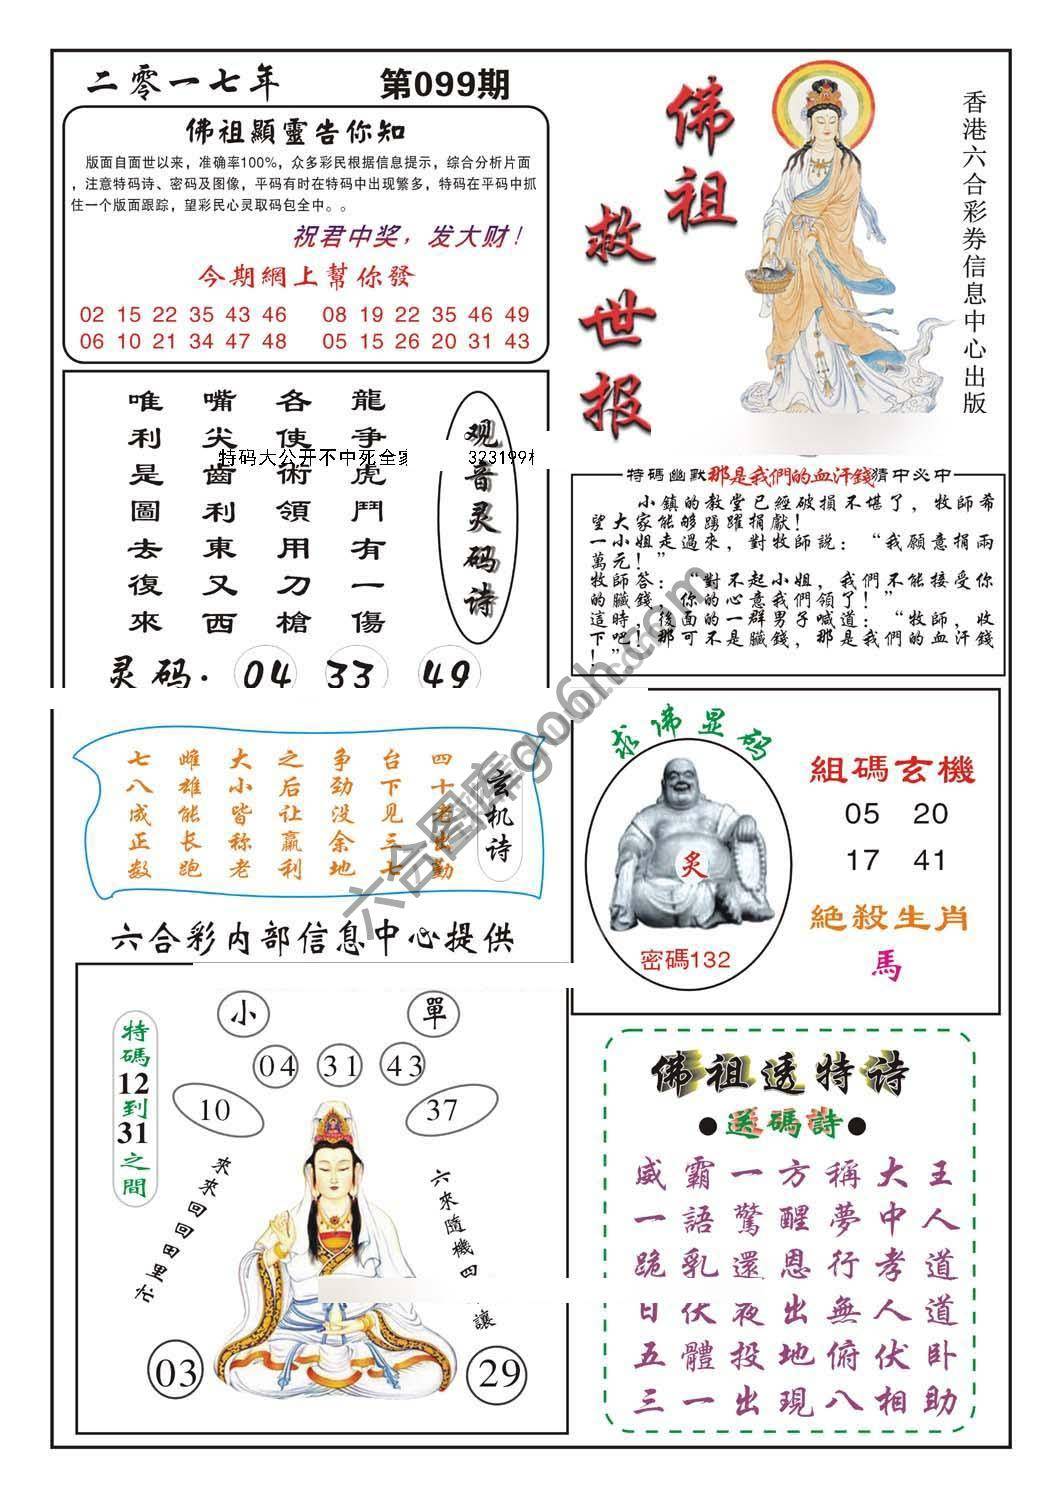 二零一七年
第099期
佛祖顯靈告你知
版面自面世以来，准确率100%，众多彩民根据信息提示，综合分析片面
，注意特码诗、密码及图像，平码有时在特码中出现繁多，特码在平码中抓
住一个版面跟踪，望彩民心灵取码包全中。。
祝君中奖，发大财！
今期網上幫你發
02 15 22 35 43 46 08 19 22 35 46 49
06 10 21 34 47 48 05 15 26 20 31 43
佛祖
救世报
香港六合彩券信息中心出版
观音灵码诗
龍争虎鬥有一傷
各使術領用刀槍
嘴尖齒利東又西
唯利是圖去復來
特码大公开不中死全家
323199
灵码. 04 33 49
特碼幽默那是我們的血汗錢猜中必中
小鎮的教堂已經破損不堪了，牧師希
望大家能够踴躍捐獻！
一小姐走過來，對牧師說：“我願意捐兩
萬元！”
牧師答：“對不起小姐，我們不能接受你
的臟錢，你的心意我們領了！”
這時，後面的一群男子喊道：“牧師，收
下吧！那可不是臟錢，那是我們的血汗錢
！”
玄机诗
四十老出勤
台下见三七
争劲没余地
之后让赢利
大小皆称老
雌雄能长跑
七八成正数
六合图库go6h.com
求佛显码
炙
密碼132
組碼玄機
05 20
17 41
絕殺生肖
馬
六合彩内部信息中心提供
特碼12到31之間
小
單
04 31 43
10
37
來來回回田里忙
六來隨機四
讓
03
29
佛祖透特诗
●送碼詩●
威霸一方稱大王
一語驚醒夢中人
跪乳還恩行孝道
日伏夜出無人道
五體投地俯伏卧
三一出現八相助